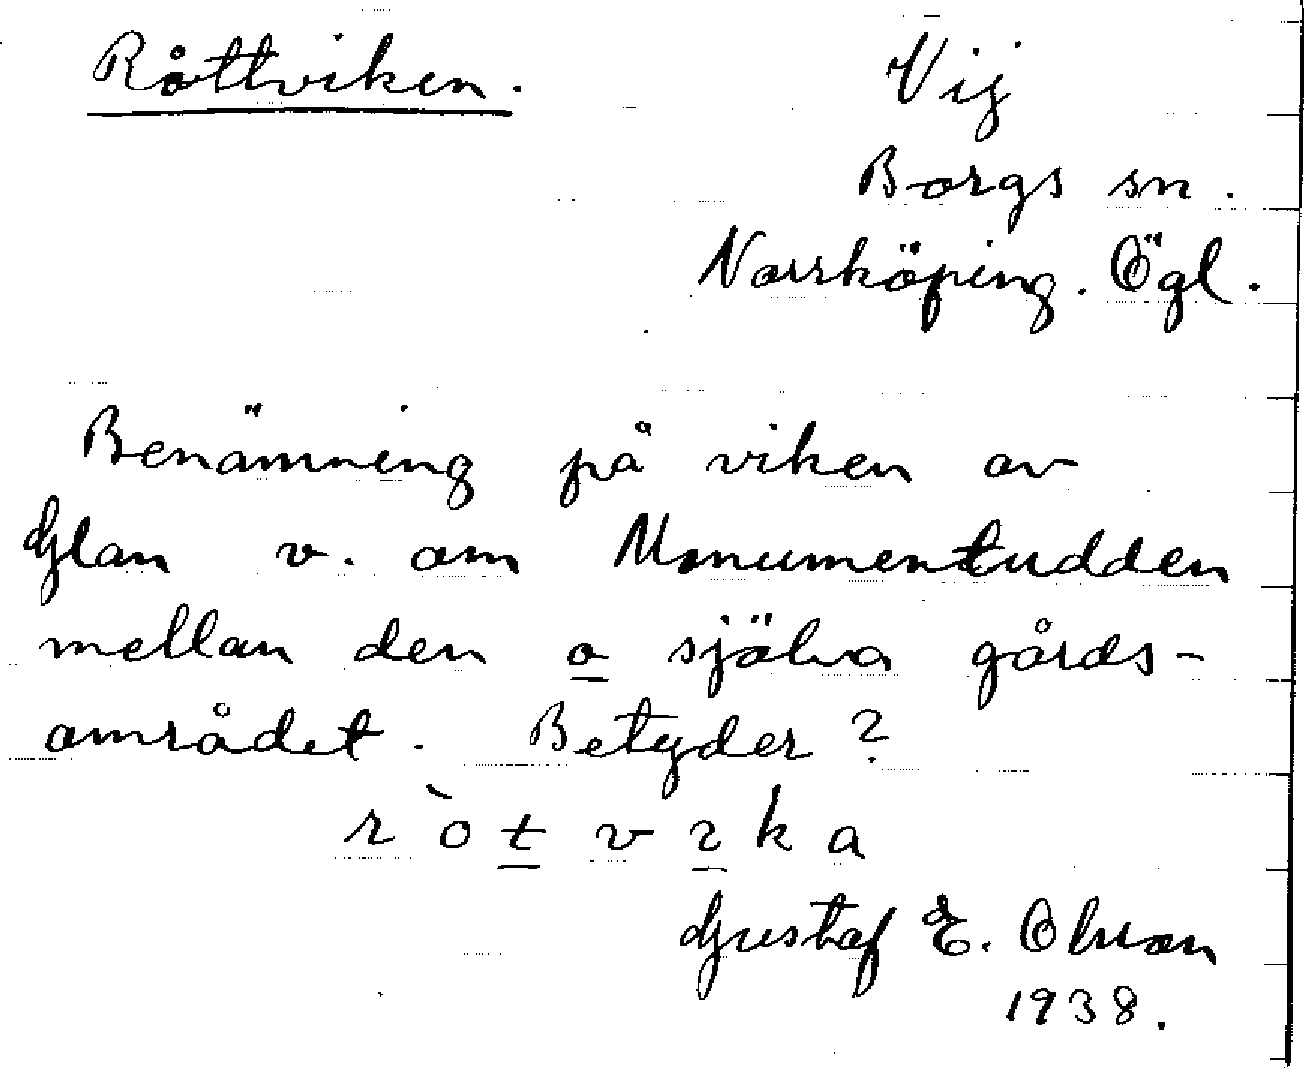 Råttviken.
Vij
Borgs sn.
Norrköping. Ögl.
Benämning på viken av
Glan v. om Monumentudden
mellan den o själva gårds-
området. Betyder?
r ò t v ɿ k a
Gustaf E. Olsson
1938.